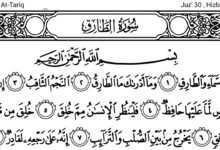 At-Tariq Juz' 30 , Hizb
سُورَةُ الطَّارِقِ
بِسْمِ اللَّهِ الرَّحْمَٰنِ الرَّحِيمِ
وَالسَّمَاءِ وَالطَّارِقِ ١ وَمَا أَدْرَاكَ مَا الطَّارِقُ ٢ النَّجْمُ الثَّاقِبُ ٣ إِن
لَّمَّا عَلَيْهَا حَافِظٌ ٤ فَلْيَنظُرِ الْإِنسَٰنُ مِمَّ خُلِقَ ٥ خُلِقَ مِن
٦ يَخْرُجُ مِن بَيْنِ الصُّلْبِ وَالتَّرَائِبِ ٧ إِنَّهُ عَلَىٰ رَجْعِهِ لَقَادِرٌ